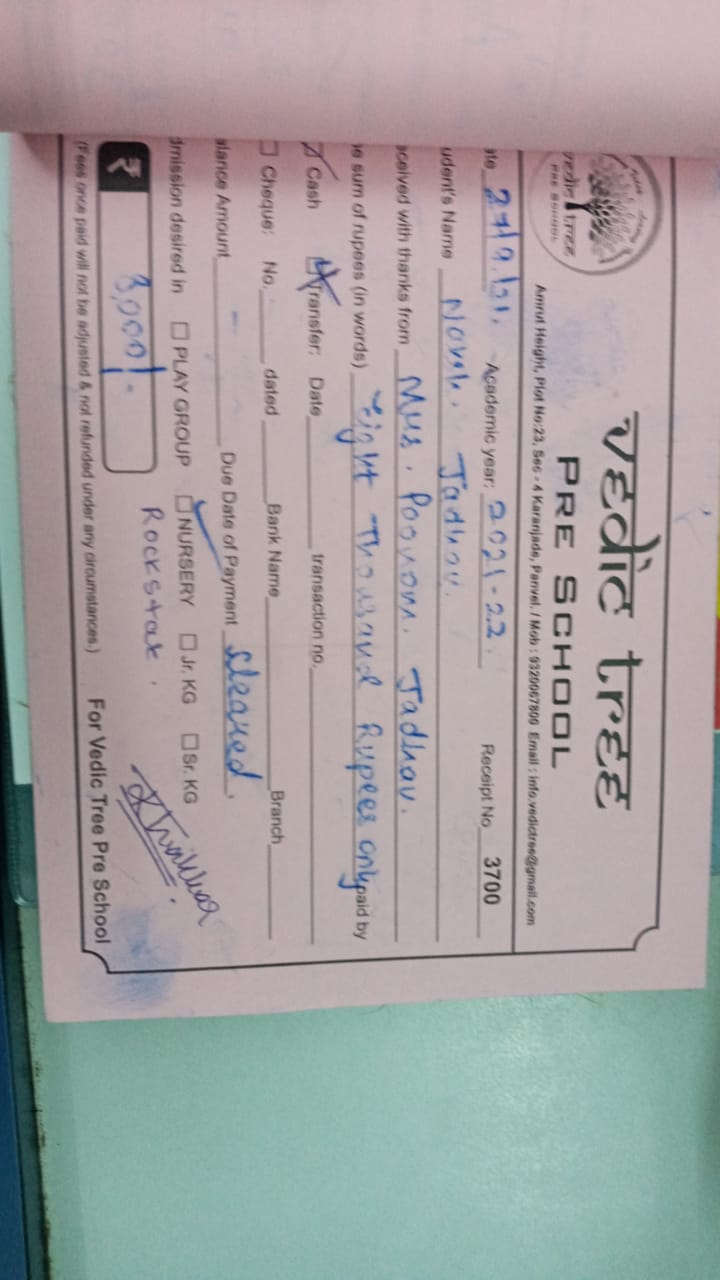 vedic tree
PRE SCHOOL
vedic tree
PRE SCHOOL
Amrut Height, Plot No:23, Sec - 4 Karanjade, Panvel. / Mob : 9320067800 Email : info.vedictree@gmail.com
ate Academic year: 2021-22. Receipt No 3700
udent's Name Jadhav.
eceived with thanks from Mrs. Poonam. Jadhav.
e sum of rupees (in words) Eight Thousand Rupees only paid by
Cash Transfer: Date transaction no.
Cheque: No. dated Bank Name Branch
alance Amount - Due Date of Payment Cleared.
dmission desired in PLAY GROUP NURSERY Jr. KG Sr. KG
Rockstar.
₹ 8,000/-
(Fees once paid will not be adjusted & not refunded under any circumstances.) For Vedic Tree Pre School